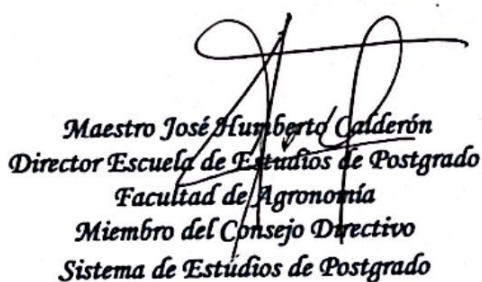 Maestro José Humberto Calderón
Director Escuela de Estudios de Postgrado
Facultad de Agronomía
Miembro del Consejo Directivo
Sistema de Estúdios de Postgrado